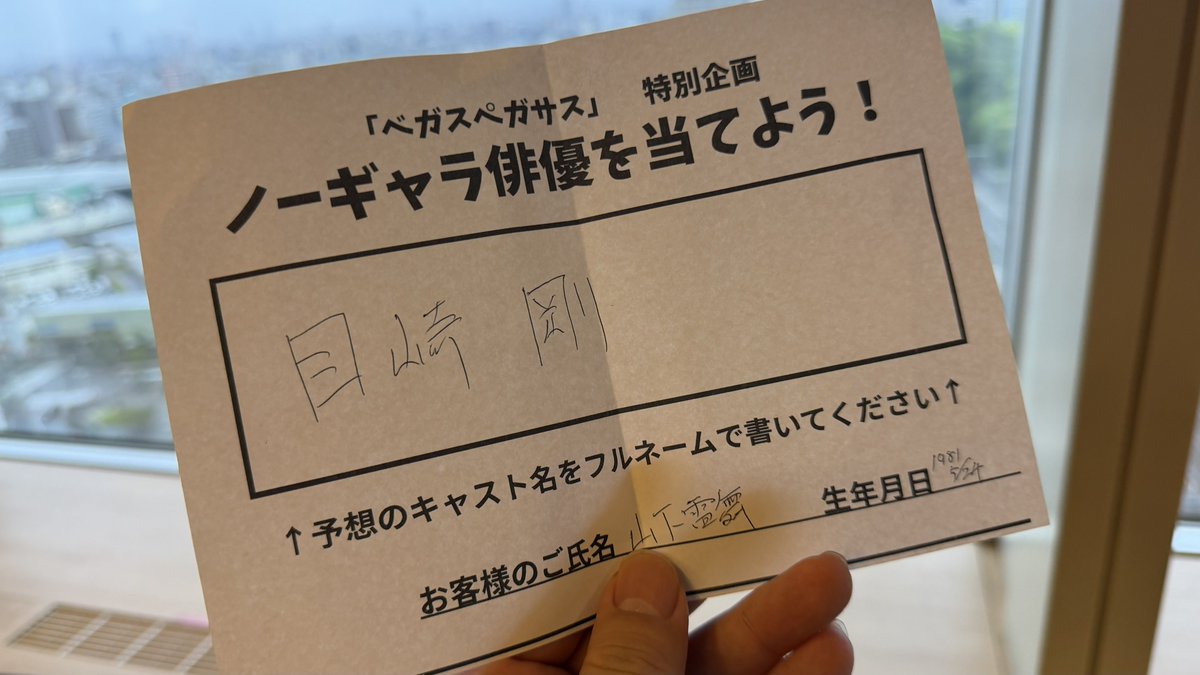 「ベガスペガサス」 特別企画
ノーギャラ俳優を当てよう！
目崎 剛
↑予想のキャスト名をフルネームで書いてください↑
お客様のご氏名 山下 生年月日 1981 5/24